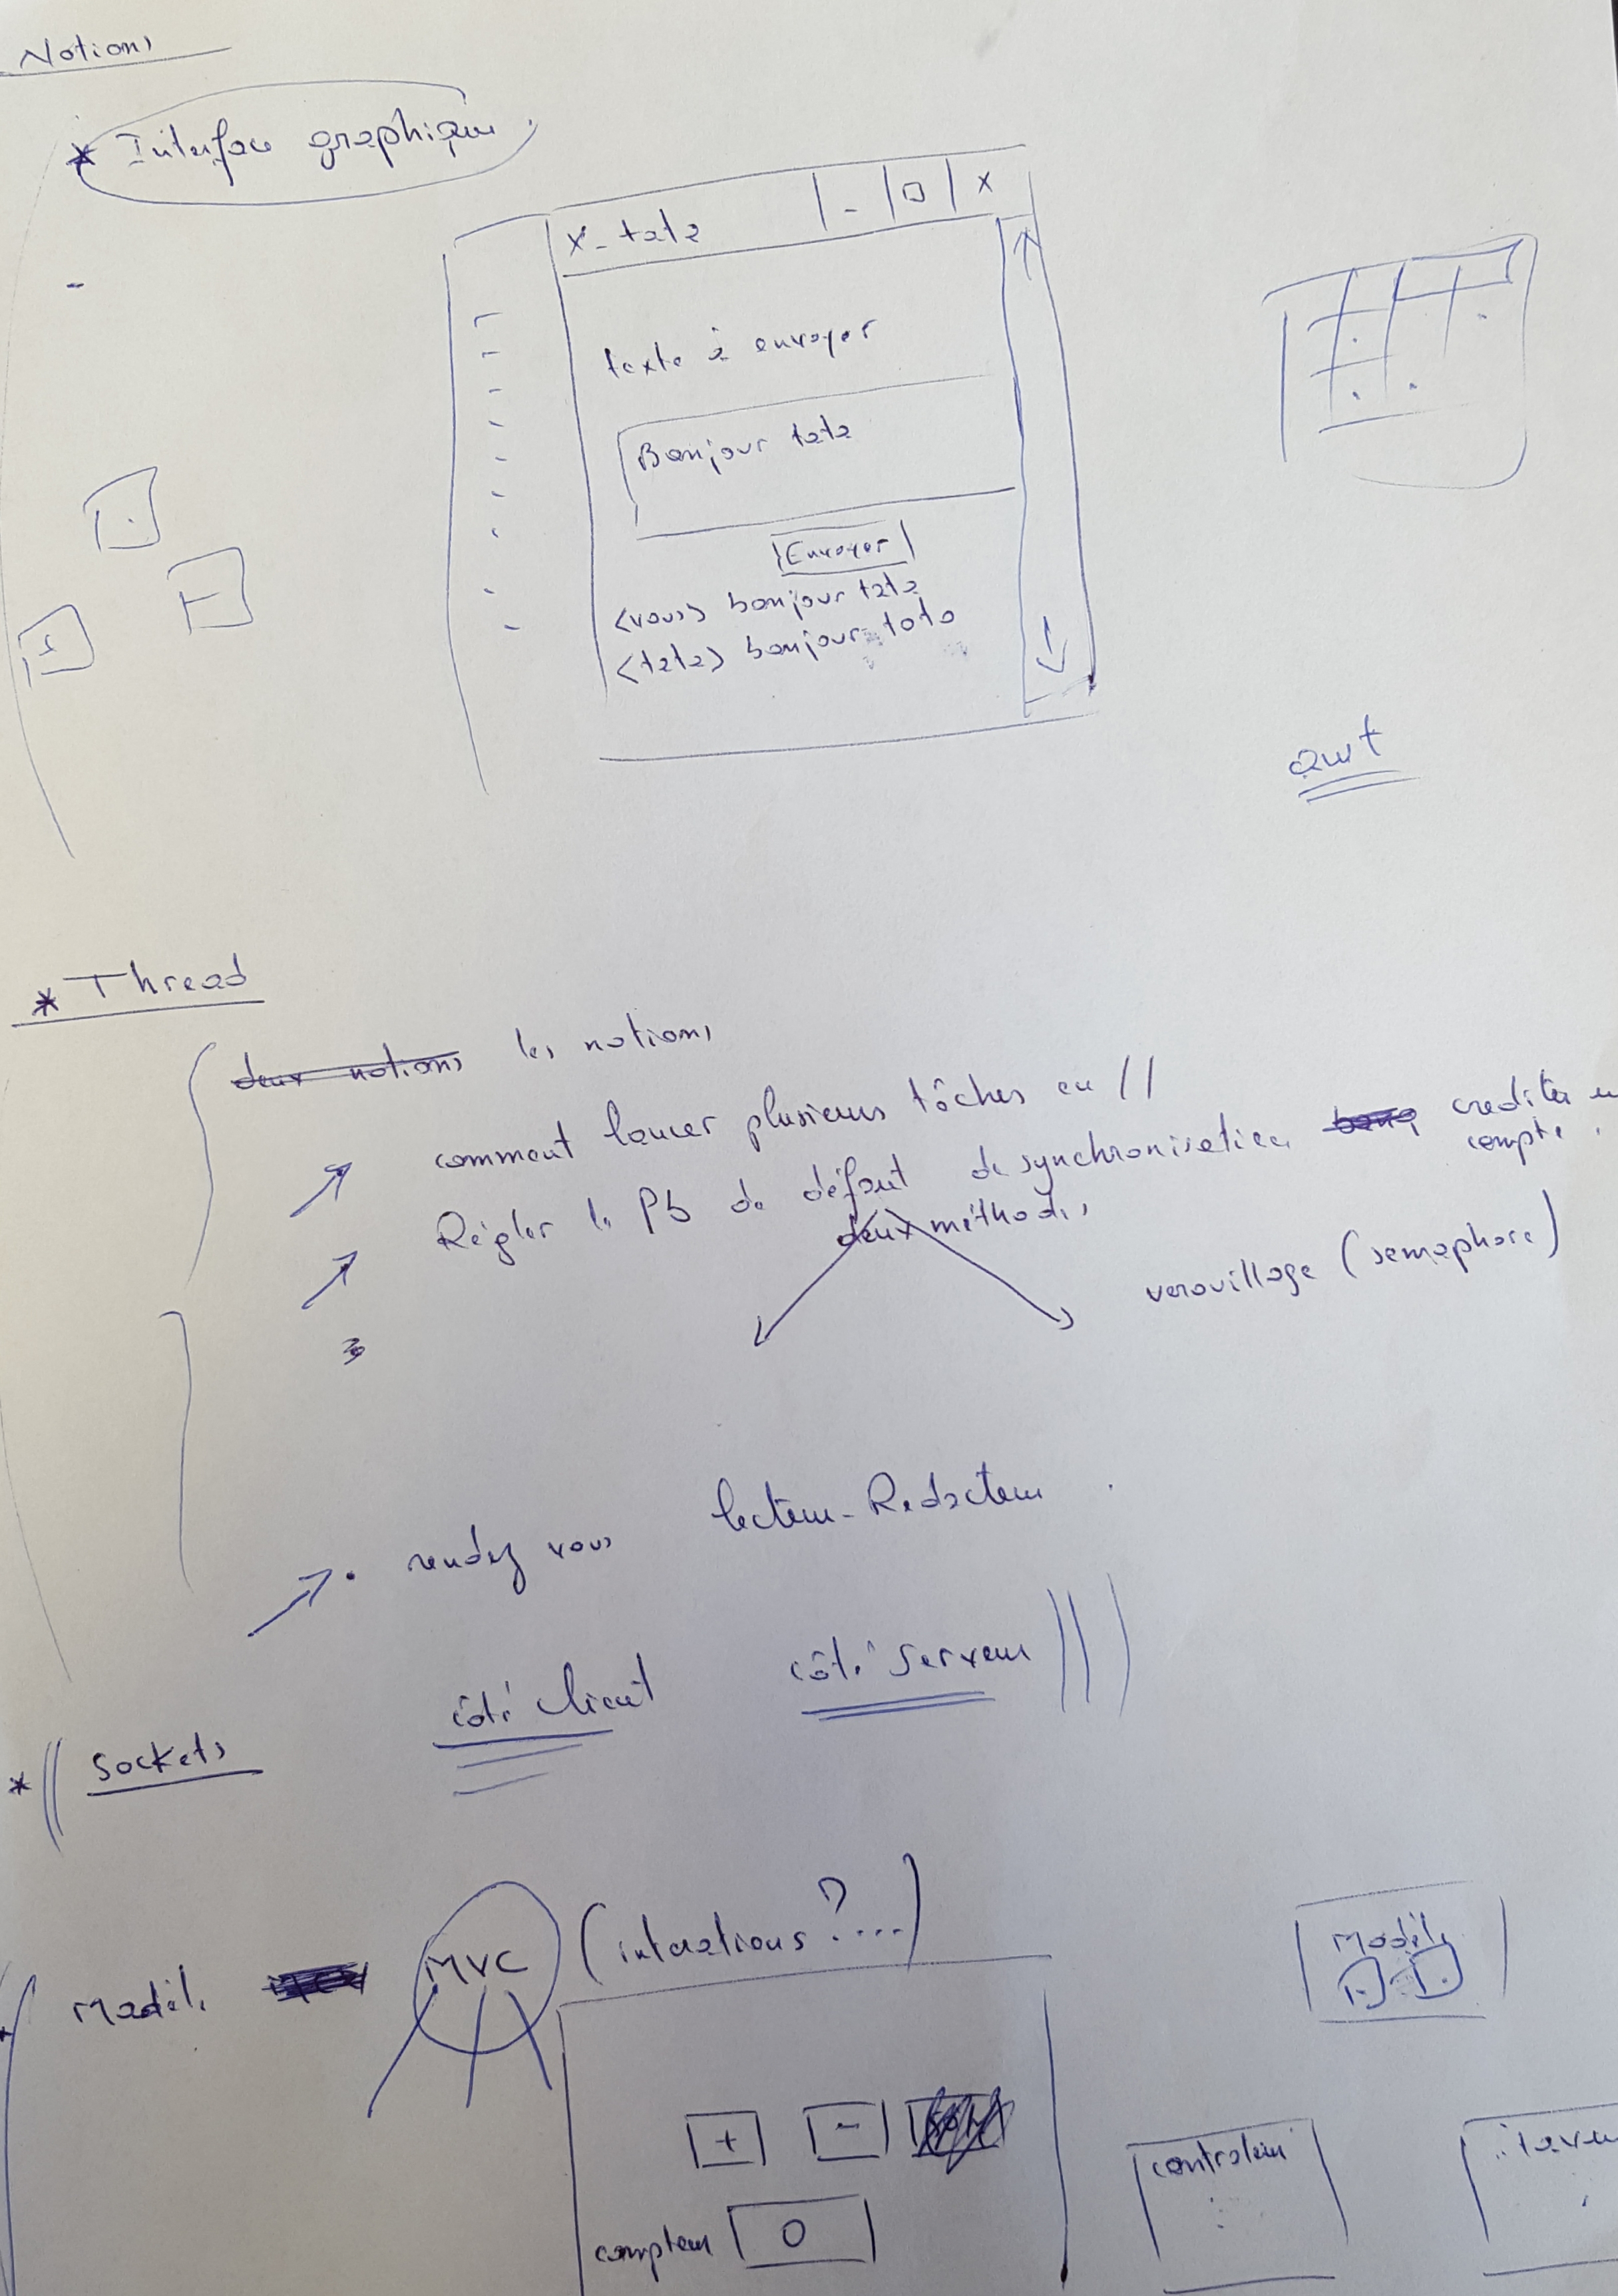 Notions
* Interface graphique
X - tata | - | □ | X
texte à envoyer
Bonjour tata
Envoyer
<vous> bonjour tata
<tata> bonjour toto
awt
* Thread
deux notions les notions
comment lancer plusieurs tâches en //
Régler le Pb de défaut de synchronisation crediter un
compte.
deux méthodes
verouillage (semaphore)
3
lecteur-Redacteur
• rendez vous
côté client côté serveur
* Sockets
Modèle MVC (interactions?....)
Modèle
+ -
controleur
compteur 0